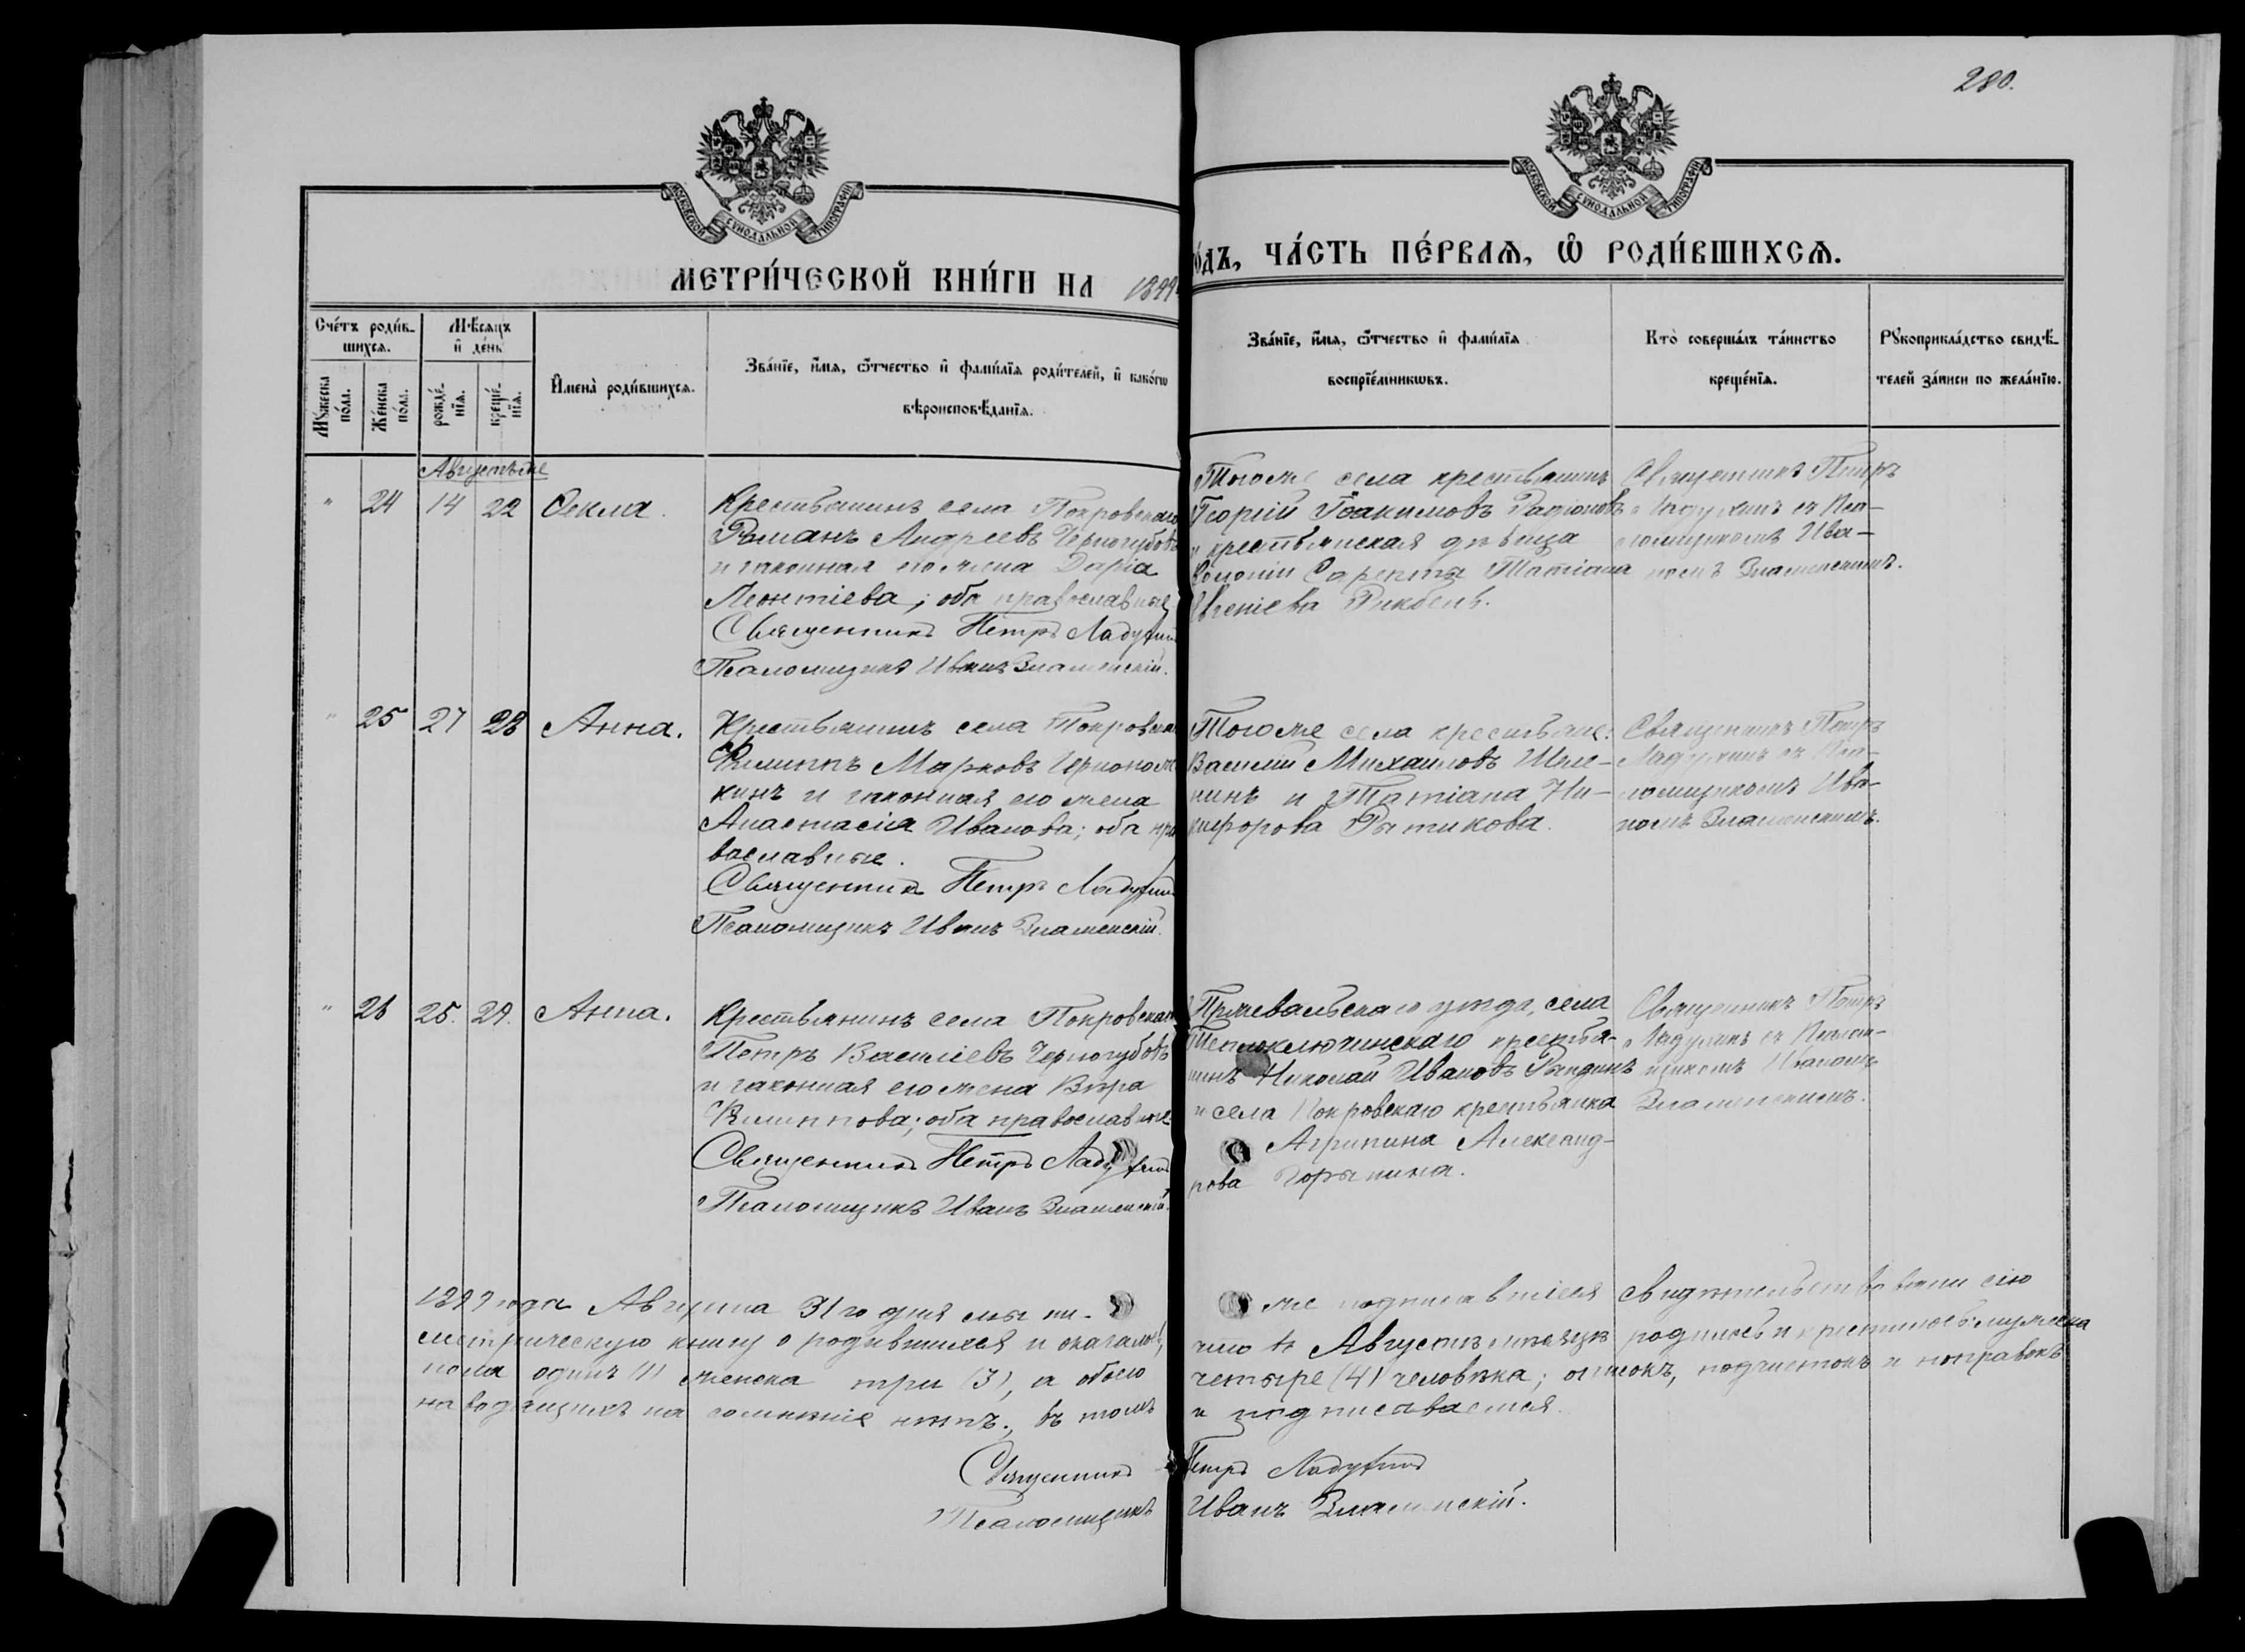 280.
МОСКОВСКОЙ СУНОДАЛЬНОЙ ТИПОГРАФІИ
МОСКОВСКОЙ СУНОДАЛЬНОЙ ТИПОГРАФІИ
МЕТРИ́ЧЕСКОЙ КНИ́ГИ НА 1899
го́дъ, ЧА́СТЬ ПЕ́РВАЯ, Ѡ РОДИ́ВШИХСЯ.
Сче́тъ роди́в-
шихся.
Мѣсяцъ
и де́нь
Мꙋжеска по́ла.
Же́нска по́ла.
рожде́-
нїя.
креще́-
нїя.
Имена̀ роди́вшихся.
Зва́нїе, и́мя, ѻ́тчество и фами́лїя роди́телей, и како́гѡ
вѣроисповѣданїя.
Зва́нїе, и́мя, ѻ́тчество и фами́лїя
воспрїе́мникѡвъ.
Кто̀ соверша́лъ та́инство
креще́нїя.
Рꙋкоприкла́дство свидѣ-
телей за́писи по жела́нїю.
Августъ
" 24 14 22 Ѳекла.
Крестьянинъ села Покровскаго
Романъ Андреевъ Черногубовъ
и законная его жена Дарія
Леонтіева; оба православные
Священникъ Петръ Ладухинъ
Псаломщикъ Иванъ Знаменскій.
Тогоже села крестьянинъ
Георгій Іоакимовъ Радіоновъ
и крестьянская дѣвица
Колоніи Сарепта Татіана
Евгеніева
Священникъ Петръ
Ладухинъ съ Пса-
ломщикомъ Ива-
номъ Знаменскимъ.
" 25 27 28 Анна.
Крестьянинъ села Покровска
Филиппъ Марковъ
кинъ и законная его жена
Анастасія Иванова; оба пра
вославные.
Священникъ Петръ Ладухинъ
Псаломщикъ Иванъ Знаменскій.
Тогоже села крестьяне:
Василій Михаиловъ
нинъ и Татіана Ни-
кифорова
Священникъ Петръ
Ладухинъ съ Пса-
ломщикомъ Ива-
номъ Знаменскимъ.
" 26 25. 29. Анна.
Крестьянинъ села Покровскаго
Петръ Василіевъ Черногубовъ
и законная его жена Вѣра
Филиппова; оба православные
Священникъ Петръ Ладухинъ
Псаломщикъ Иванъ Знаменскій.
Пржевальскаго уѣзда, села
Теплоключинскаго крестья-
нинъ Николай Ивановъ
и села Покровскаго крестьянка
Агрипина Александ-
рова Горынина.
Священникъ Петръ
Ладухинъ съ Псалом-
щикомъ Иваномъ
Знаменскимъ.
1899 года Августа 31го дня мы ни-
же подписавшіеся свидѣтельствовали сію
метрическую книгу о родившихся и оказалось,
что въ Августѣ мѣсяцѣ родилось и крестилось: мужеска
пола одинъ (1) женска три (3), а обоего
четыре (4) человѣка; описокъ, подчистокъ и поправокъ
наводящихъ на сомнѣніе нѣтъ; въ томъ
и подписываемся.
Священникъ Петръ Ладухинъ
Псаломщикъ Иванъ Знаменскій.